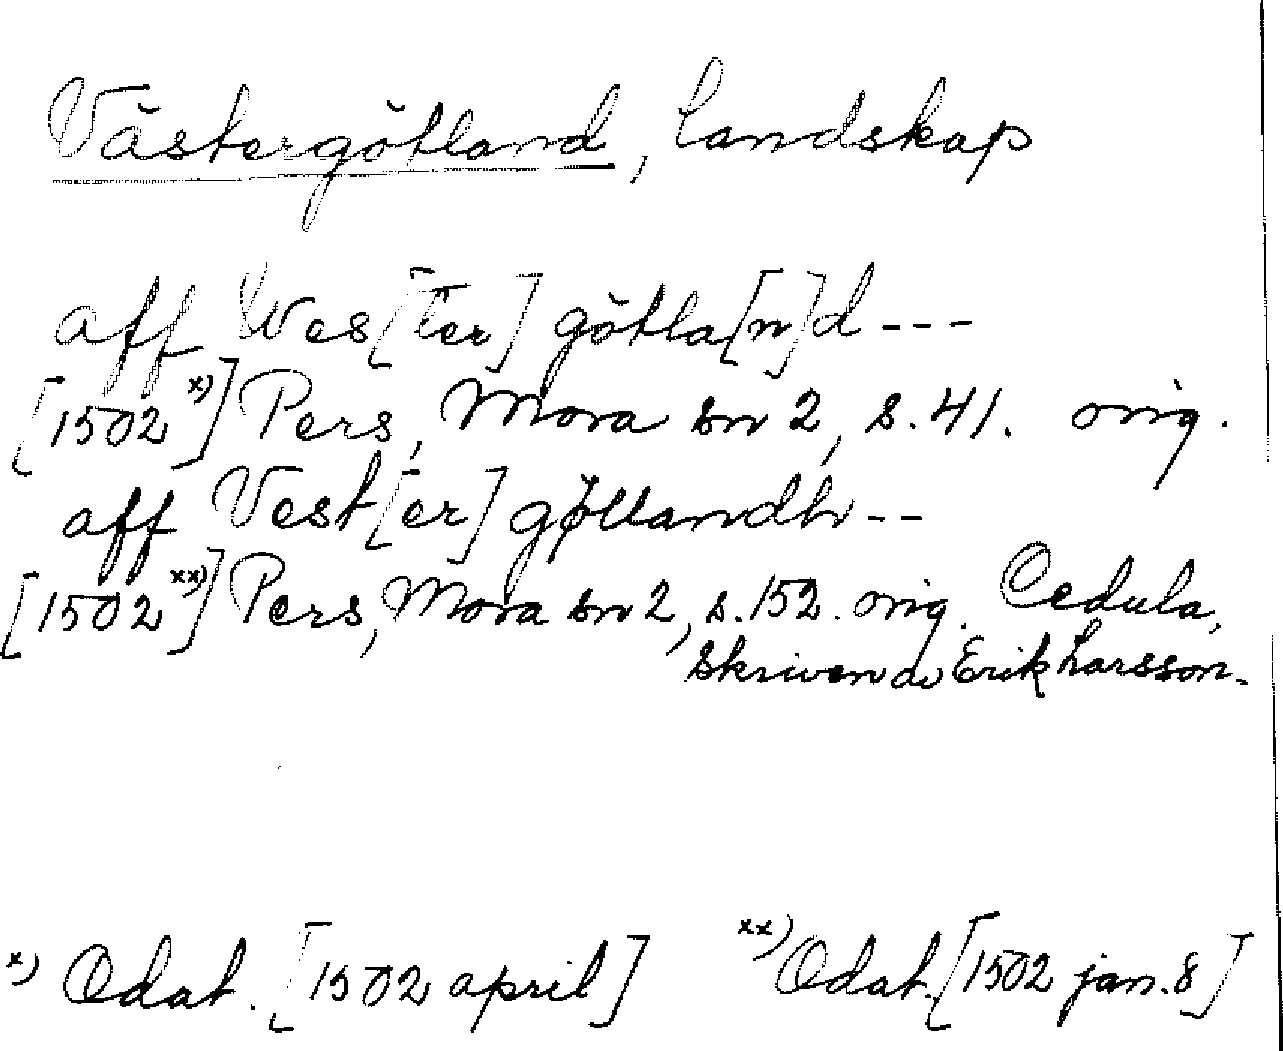 Västergötland, landskap
aff Wes[ter]götla[n]d---
[1502 x)] Pers, Mora sn 2, s. 41. orig.
aff Vest[er]gøttandh--
[1502 xx)] Pers, Mora sn 2, s. 152. orig. Cedula,
skrivon av Erik Larsson.
x) Odat. [1502 april] xx) Odat. [1502 jan. 8]